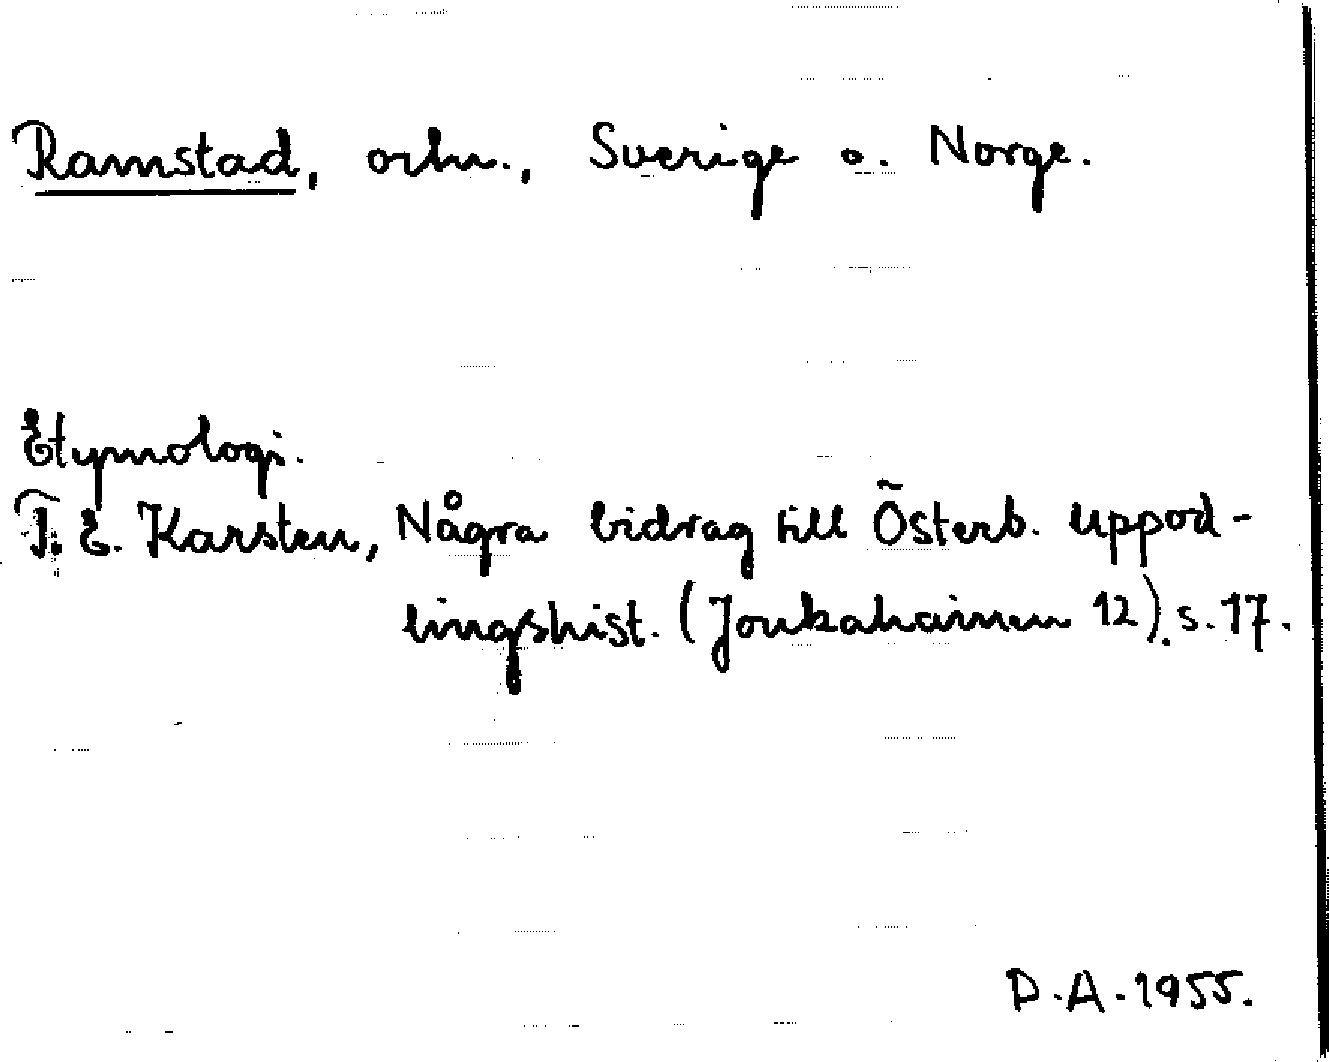 Ramstad, ortn., Sverige o. Norge.
Etymologi.
T. E. Karsten, Några bidrag till Österb. uppod-
lingshist. (Joukahainen 12). s. 17.
D.A. 1955.